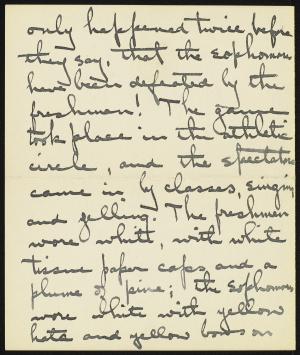 only happened twice before
they say, that the Sophomores
have been defeated by the
freshmen! The game
took place in the athletic
circle, and the spectators
came in by classes, singing
and yelling. The freshmen
wore white, with white
tissue paper caps and a
plume of pine; the Sophomores
wore white with yellow
hats and yellow bows on